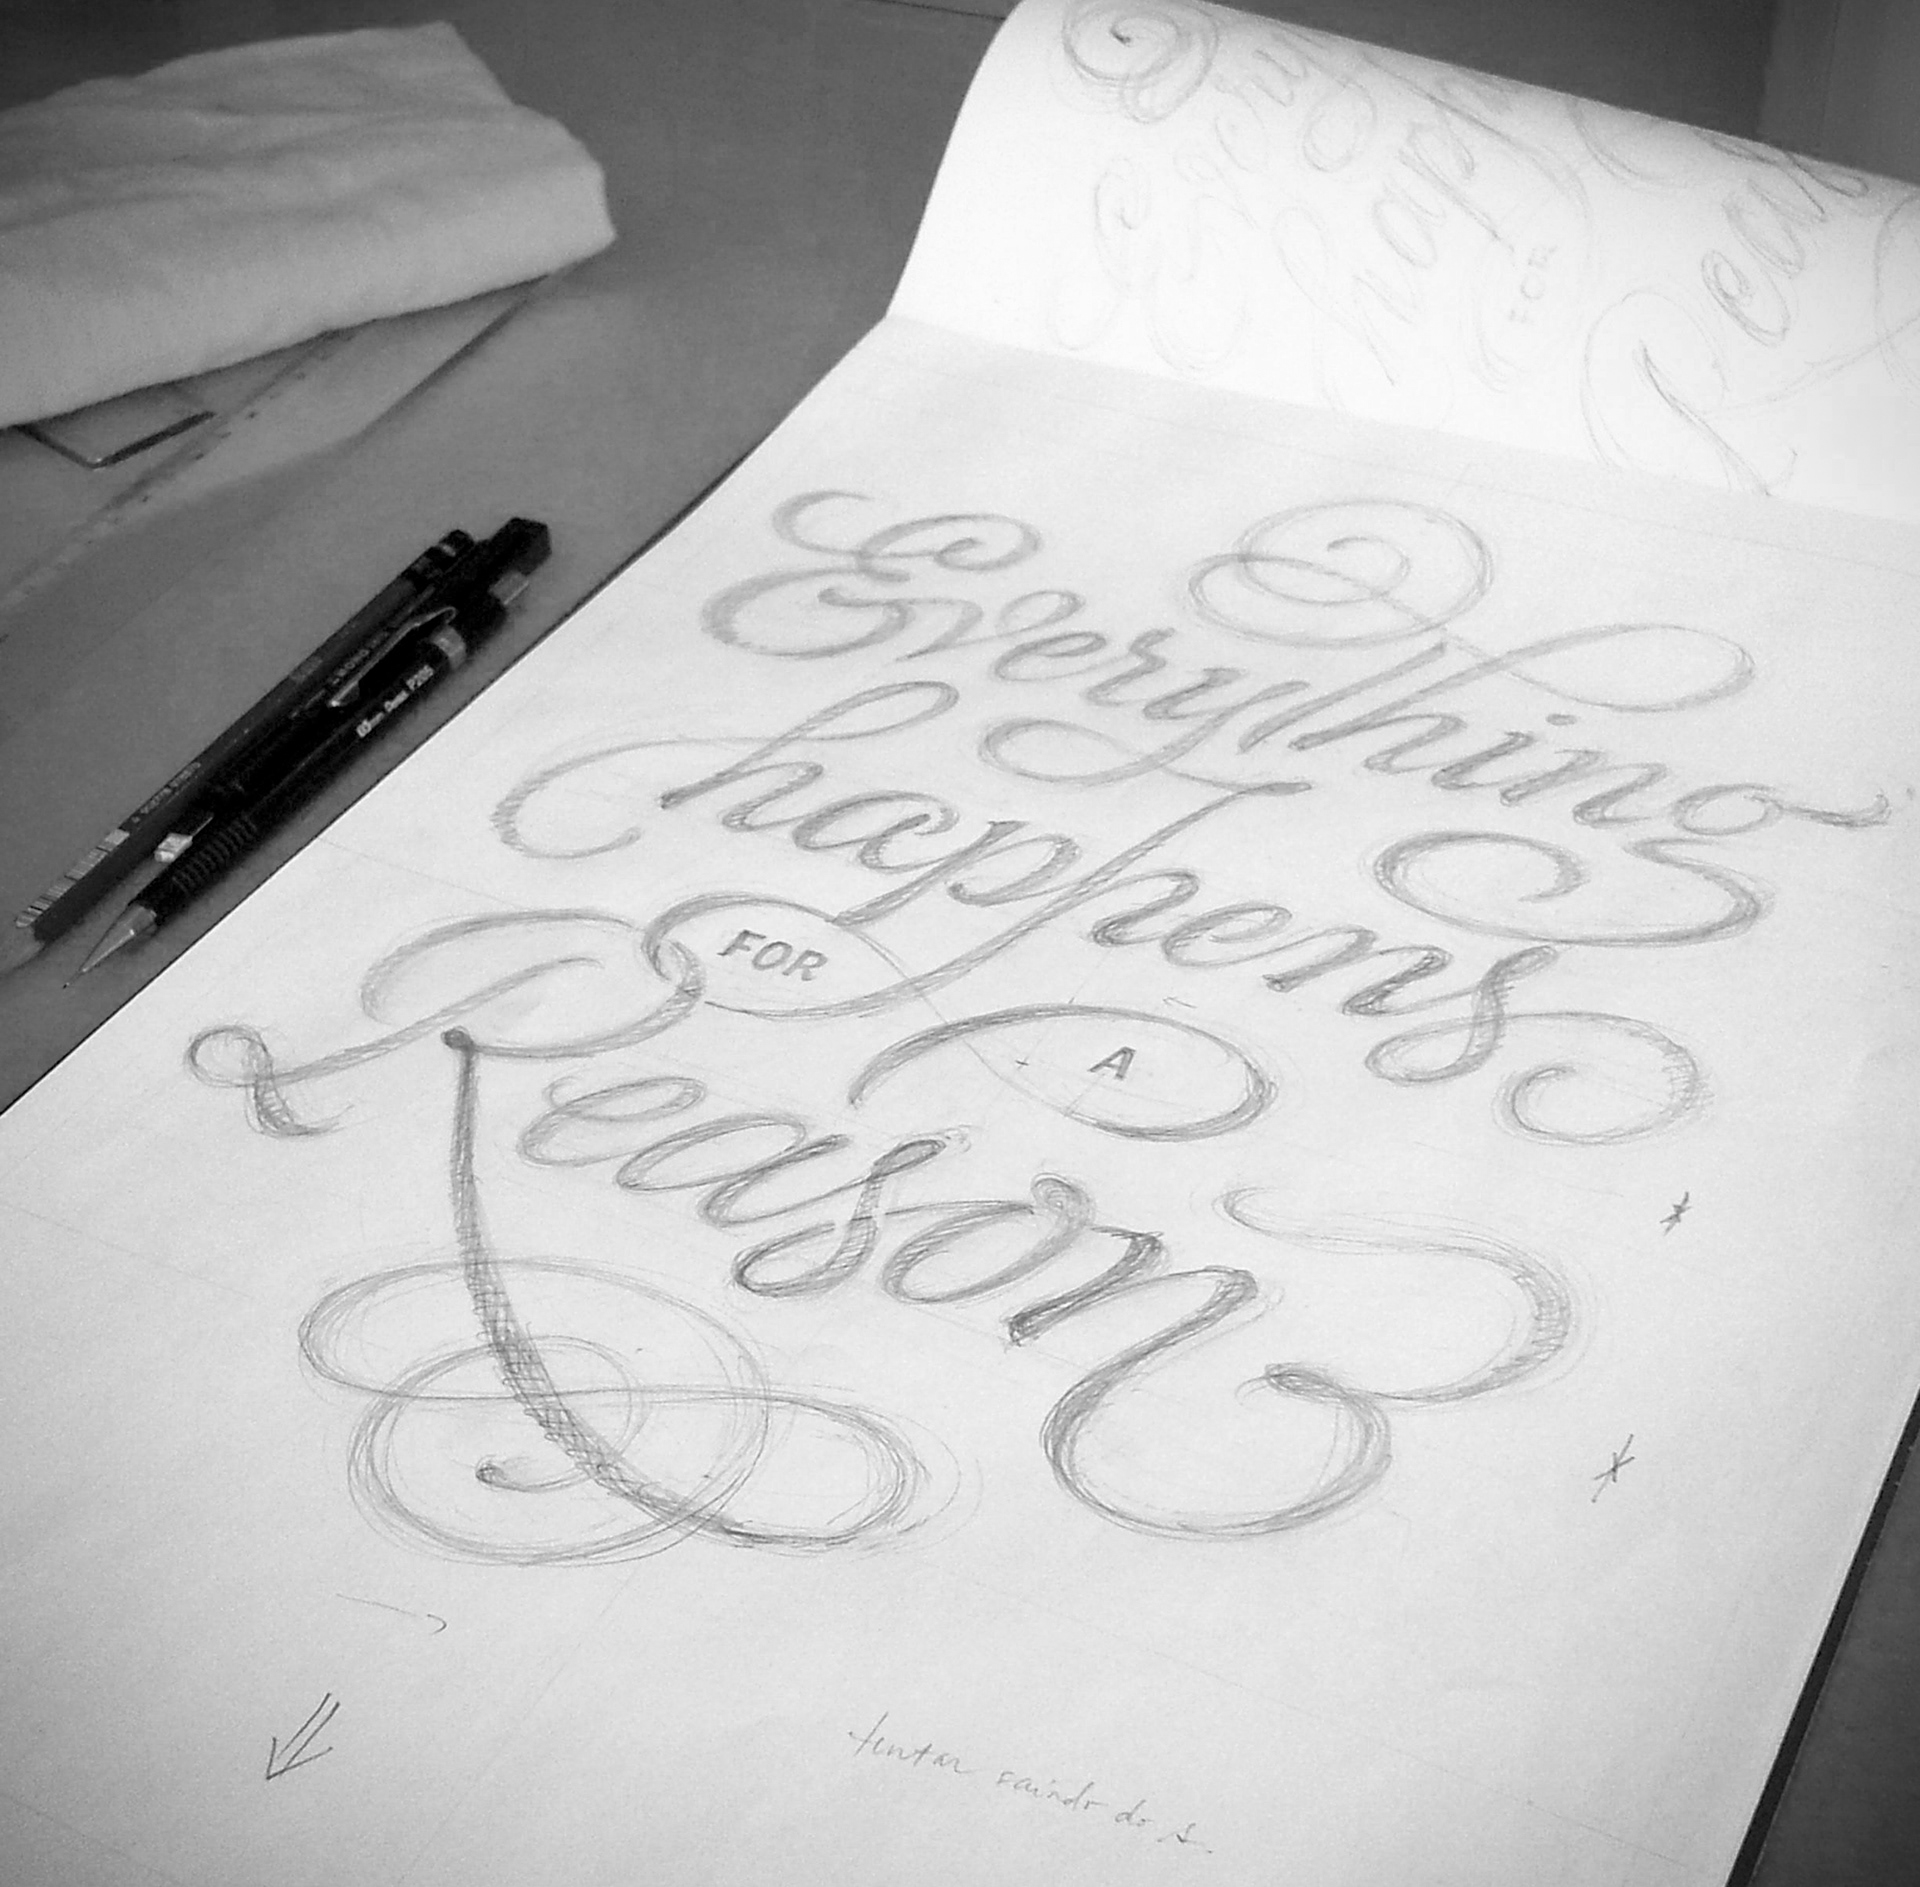 Everything
happens
FOR A
Reason
tentar saindo do s
FOR
Pentel P205